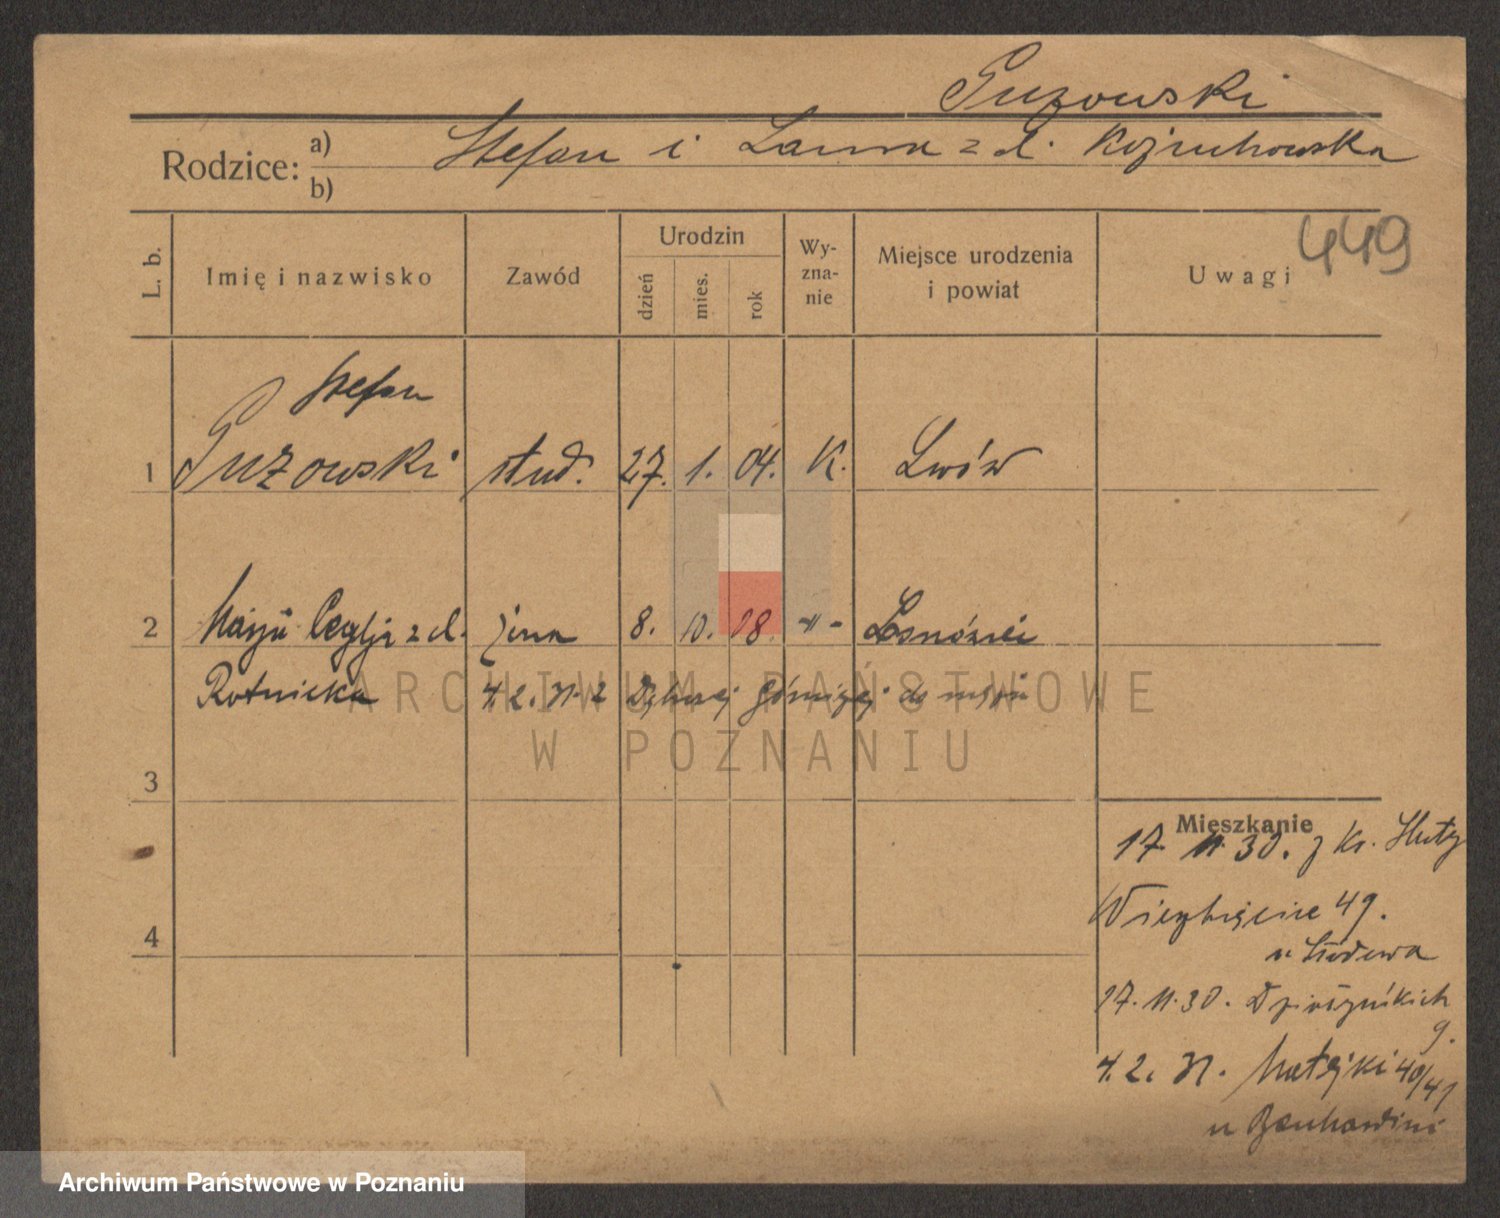 Guzowski
Rodzice: a) Stefan i Laura z d. Kożuchowska
b)
L. b.
Imię i nazwisko
Zawód
Urodzin
dzień
mies.
rok
Wy-
zna-
nie
Miejsce urodzenia
i powiat
Uwagi
449
Stefan
1 Guzowski stud. 27. 1. 04. K. Lwów
2 Cegłji z d. żona 8. 10. 08. -"-
Rotnicka 4. 2. 31. z Górnej do męża
3
4
Mieszkanie
17. 11. 30. z Kr. Huty
Wierzbięcice 49.
u
17. 11. 30.
9.
4. 2. 31. Matejki 40/41
u
ARCHIWUM PAŃSTWOWE
W POZNANIU
Archiwum Państwowe w Poznaniu